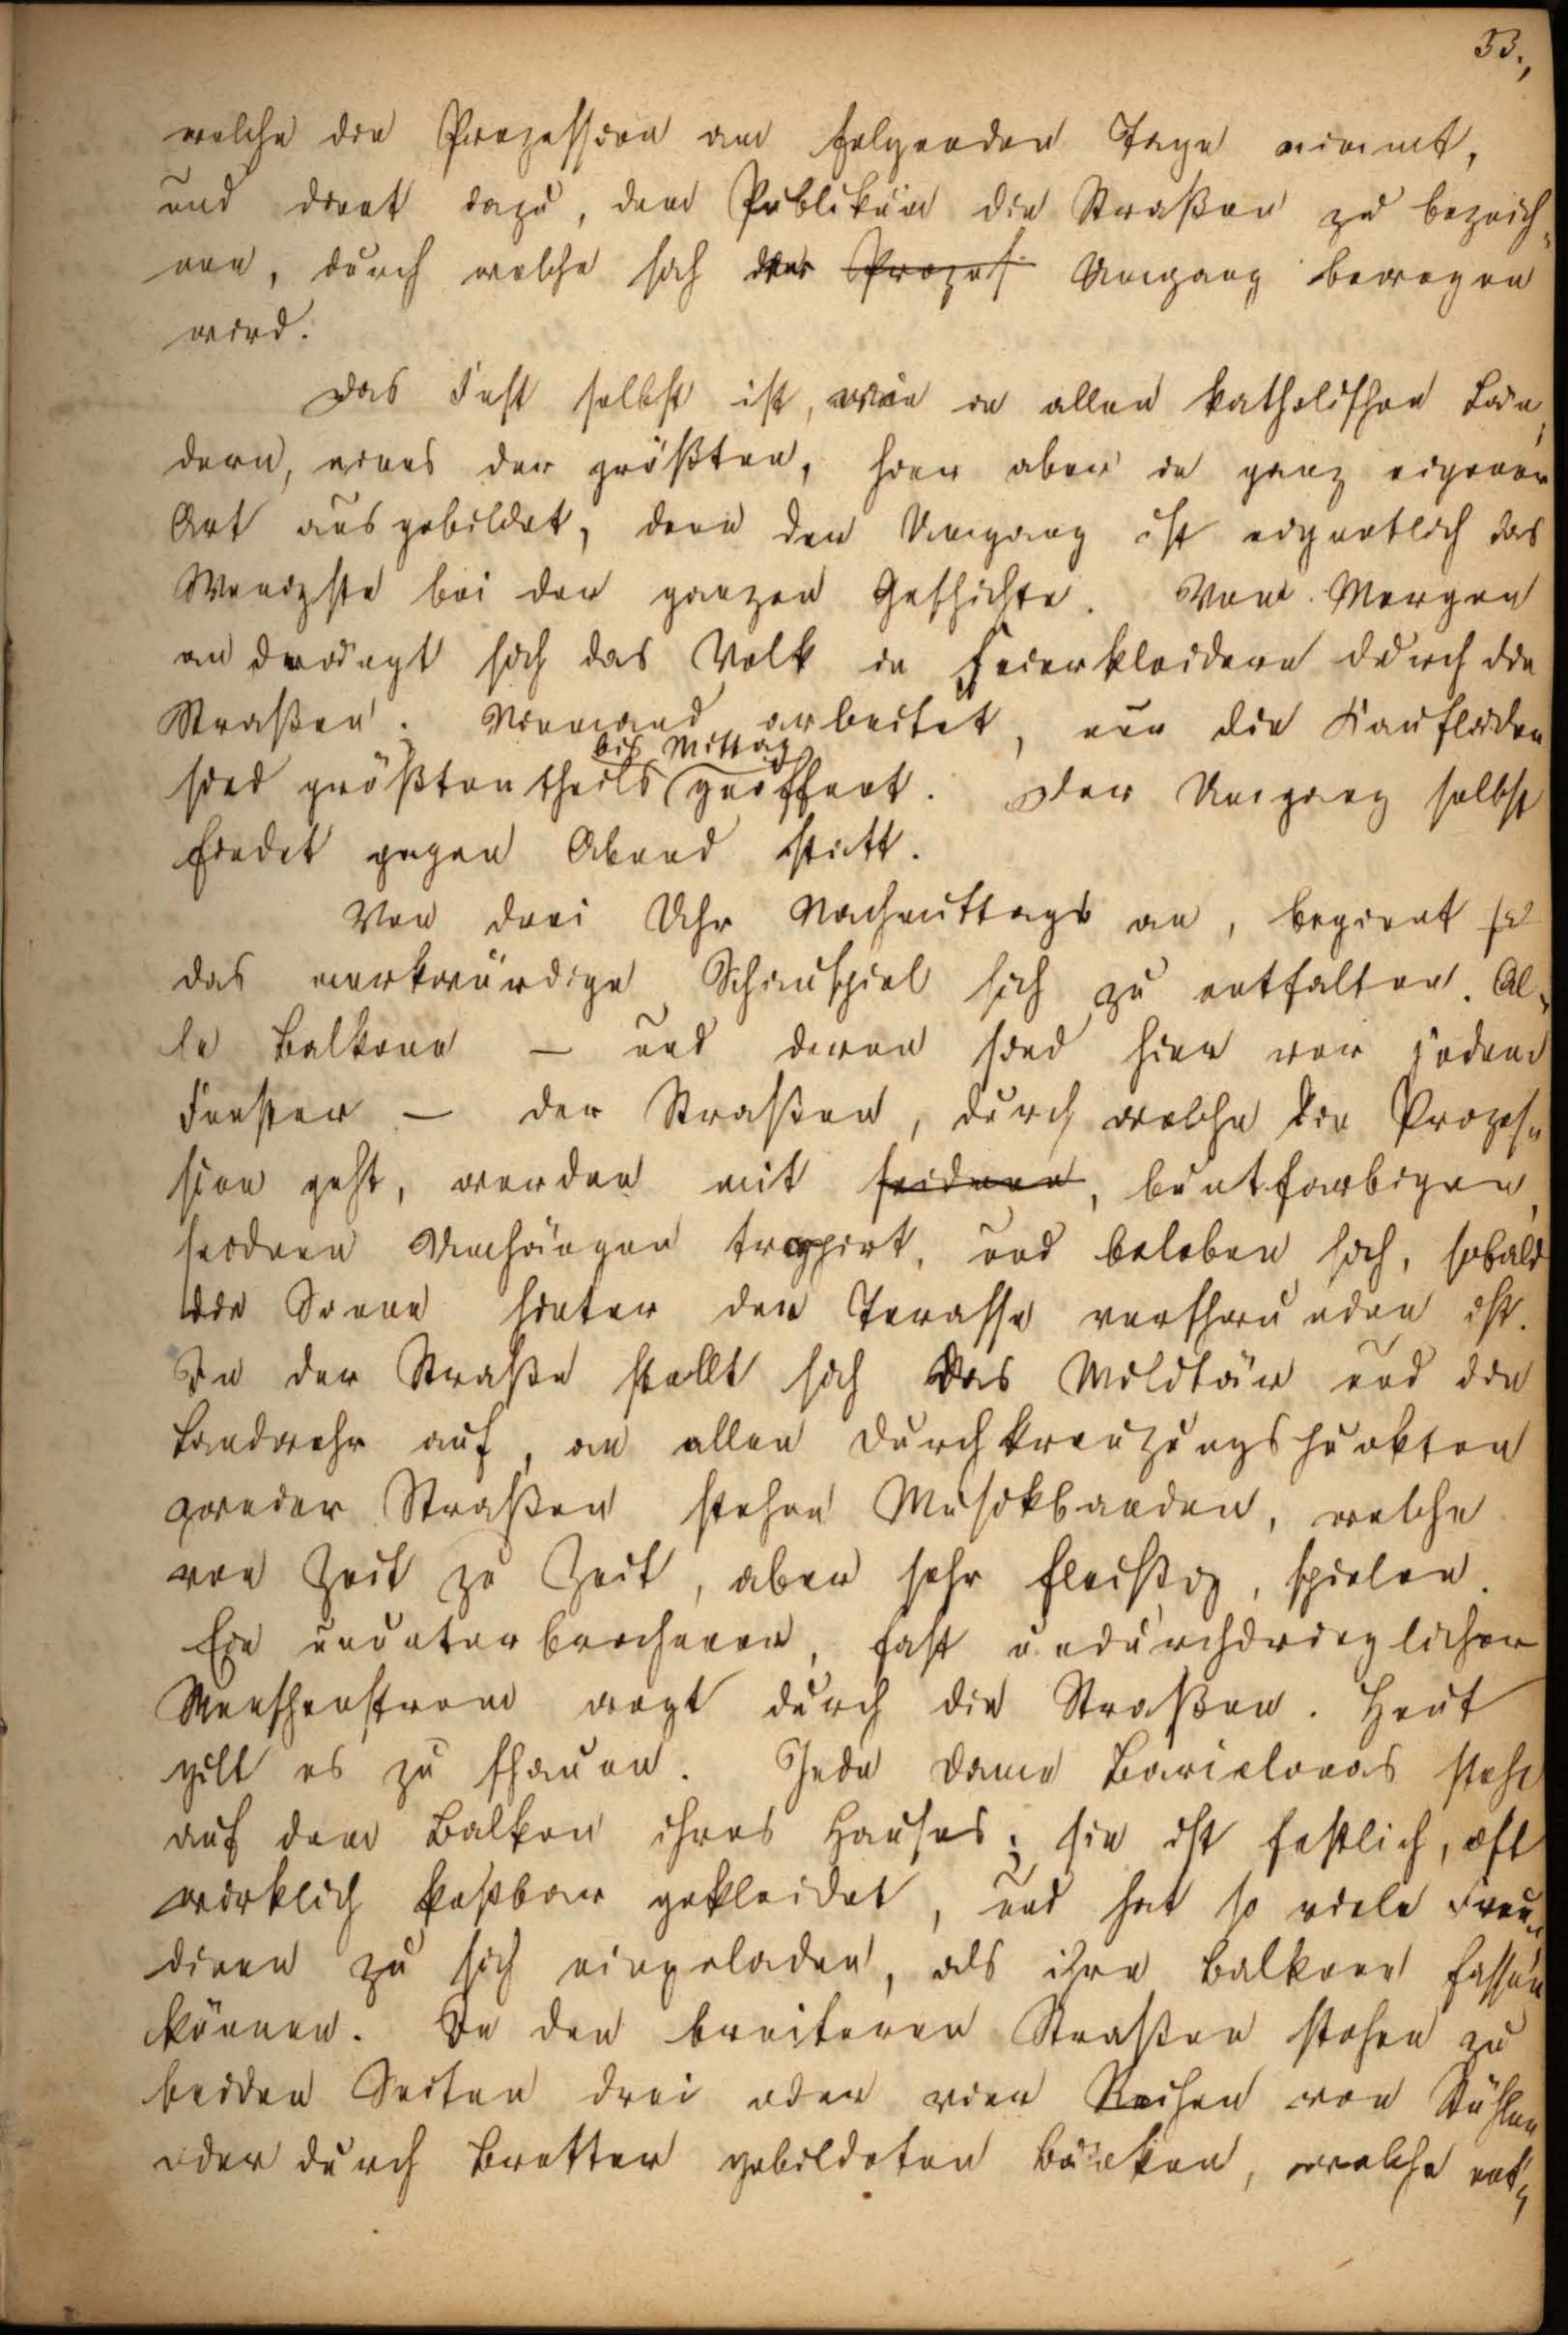 53.,
welche die Prozession am folgenden Tage nimmt,
und dient dazu, dem Publikum die Straßen zu bezeich-
nen, durch welche sich der Prozes Umgang bewegen
wird.
Das Fest selbst ist, wie in allen katholischen Län-
dern, eines der größten, hier aber in ganz eigener
Art ausgebildet, denn der Umgang ist eigentlich das
Wenigste bei der ganzen Geschichte. Vom Morgen
an drängt sich das Volk in Feierkleidern durch die
Straßen. Niemand arbeitet, nur die Kaufläden
bis Mittag
sind größtentheils geöffnet. Der Umgang selbst
findet gegen Abend statt.
Von drei Uhr Nachmittags an, beginnt so
das merkwürdige Schauspiel sich zu entfalten. Al-
le Balkone — und deren sind hier vor jedem
Fenster — der Straßen, durch welche die Prozes-
sion geht, werden mit seidnen, buntfarbigen,
seidnen Umhängen trappirt, und beleben sich, sobald
die Sonne hinter der Terasse verschwunden ist.
In der Straße stellt sich das Militär und die
Landwehr auf, an allen Durchkreuzungspunkten
zweier Straßen stehen Musikbanden, welche
von Zeit zu Zeit, aber sehr fleißig, spielen.
Ein ununterbrochener, fast undurchdringlicher
Menschenstrom wogt durch die Straßen. Heut
gilt es zu schauen. Jede Dame Barcelonas steht
auf dem Balkon ihres Hauses; sie ist festlich, oft
wirklich kostbar gekleidet, und hat so viele Freun-
dinen zu sich eingeladen, als ihre Balkone fassen
können. In den breiteren Straßen stehen zu
beiden Seiten drei oder vier Reihen von Stühlen
oder durch Bretter gebildeten Bänken, welche ent-